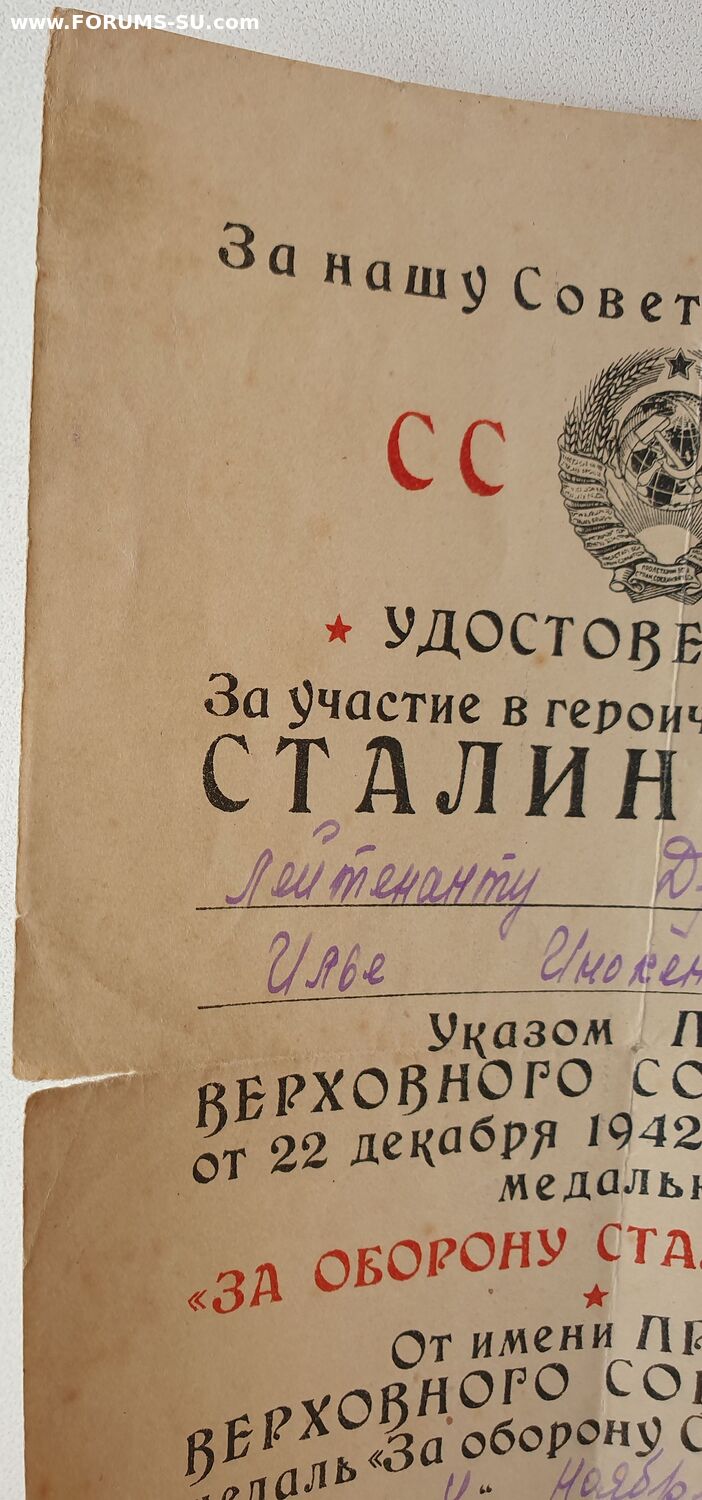 www.FORUMS-SU.com
За нашу Совет
СС
ПРОЛЕТАРИИ ВС
СТРАН, СОЕДИНЯЙТЕС
УДОСТОВЕ
За участие в героич
СТАЛИН
Лейтенанту Д
Илье Инокен
Указом П
ВЕРХОВНОГО СО
от 22 декабря 1942
медаль
«ЗА ОБОРОНУ СТА
От имени ПР
ВЕРХОВНОГО СОВ
медаль «За оборону С
" Ноябр